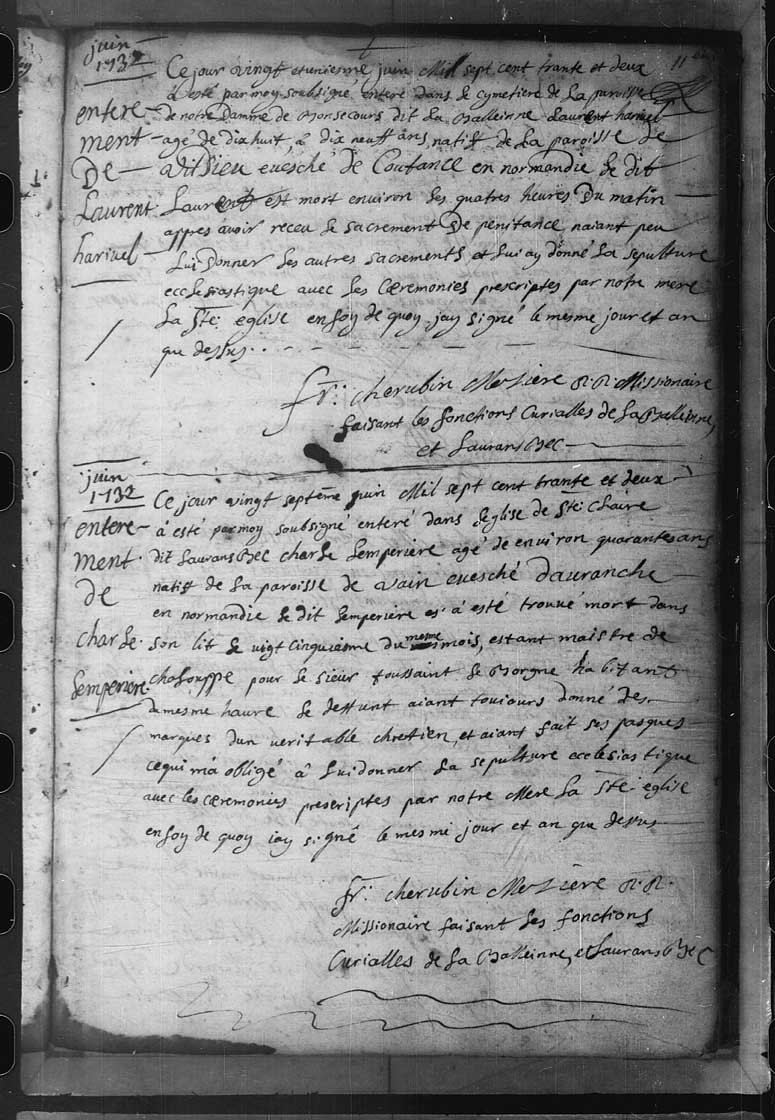 juin
1732
11
Ce jour vingt et uniemme juin Mil sept cent trante et deux
à esté par moy soubsigné enteré dans le cymetiere de La paroisse
de notre Damme de Bonsecours dit La Balleinne Laurent hariuel
agé de dixhuit, à dix neuff ans, natiff de La paroisse de
Euesché de Coutance en normandie le dit
Laurent est mort environ les quatres heures Du matin
appres avoir receu le sacrement De penitance, naiant peu
Lui Donner les autres sacrements et lui ay donné La sepulture
ecclesiastique avec les Cæremonies prescriptes par notre mere
La Ste eglise en foy de quoy jay signé le mesme jour et an
que dessus
entere-
ment
De
Laurent
hariuel
fr: cherubin R. R. Missionaire
faisant les fonctions Curialles de La Balleinne,
et Laurans Bec
juin
1732
Ce jour vingt septeme juin Mil sept cent trante et deux
à esté par moy soubsigné enteré dans leglise de Ste Claire
dit Laurans Bec charle Lemperiere agé de environ quarantes ans
natiff de La paroisse de Vain euesché Dauranche
en normandie le dit Lemperiere à esté trouué mort dans
son lit le vigt cinquiesme du mesme mois, estant maistre de
chalouppe pour le sieur toussaint le Borgne habitant
a mesme haure le deffunt aiant toujours donné des
marques dun veritable chretien, et aiant fait ses pasques
ce qui ma obligé à Lui donner La sepulture ecclesiastique
avec les cæremonies prescriptes par notre Mere La Ste eglise
en foy de quoy jay signé le mesme jour et an que dessus
entere-
ment
de
charle
Lemperiere
fr: cherubin R. R.
Missionaire faisant les fonctions
Curialles de La Balleinne, et Laurans Bec